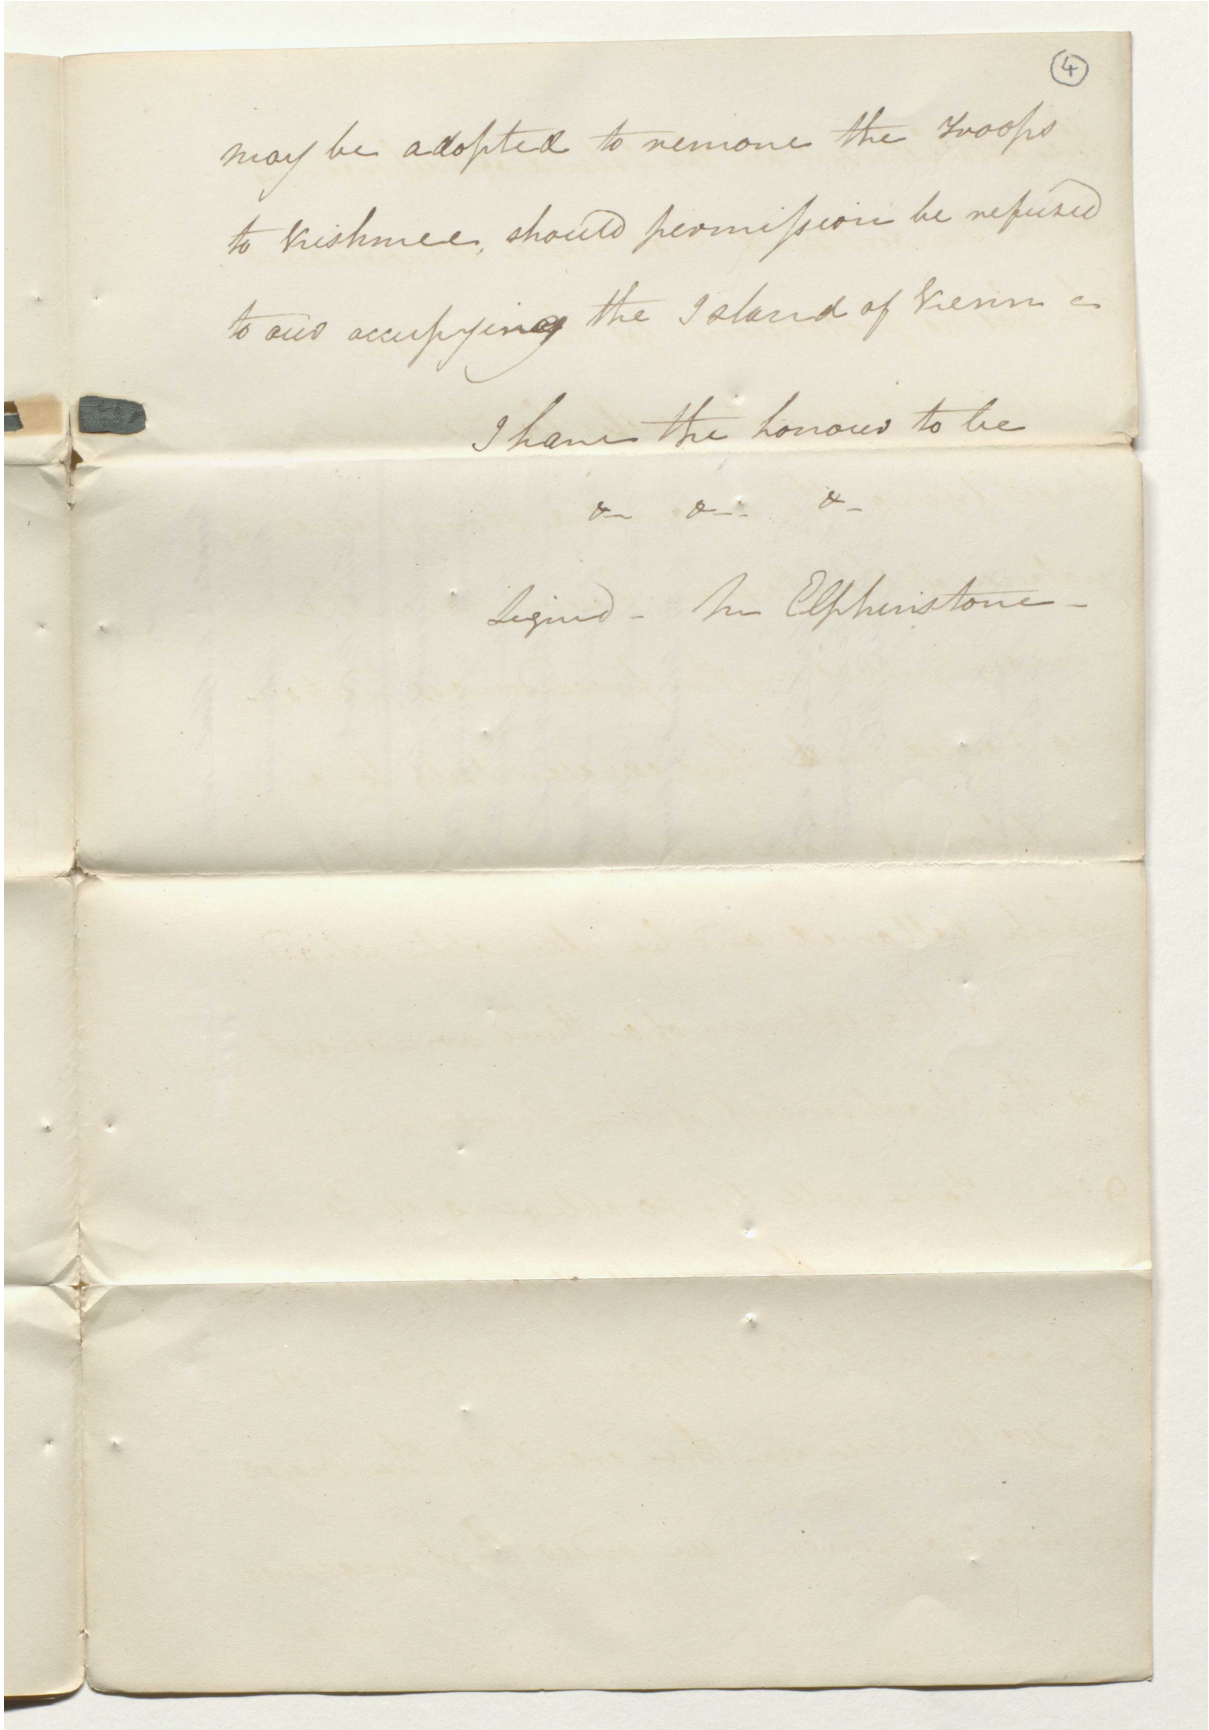 4
may be adopted to remove the troops
to Kishmee, should permission be refused
to our occupying the Island of Kenn –
I have the honour to be
&– &– &–
Signed – M Elphinstone –